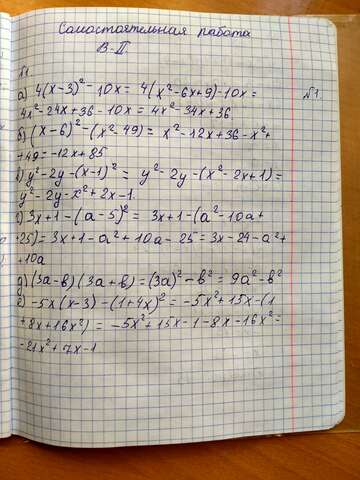 Самостоятельная работа
В-II
№1.
а) 4(x-3)² - 10x = 4(x²-6x+9)-10x =
4x²-24x+36-10x = 4x²-34x+36
№1.
б) (x-6)²-(x²-49) = x²-12x+36-x²+
+49=-12x+85
в) y²-2y-(x-1)² = y²-2y-(x²-2x+1)=
y²-2y-x²+2x-1.
г) 3x+1-(a-5)² = 3x+1-(a²-10a+
+25)=3x+1-a²+10a-25=3x-24-a²+
+10a
д) (3a-в)(3a+в)=(3a)²-в²=9a²-в²
е) -5x(x-3)-(1+4x)²=-5x²+15x-(1
+8x+16x²) = -5x²+15x-1-8x-16x²=
-21x²+7x-1